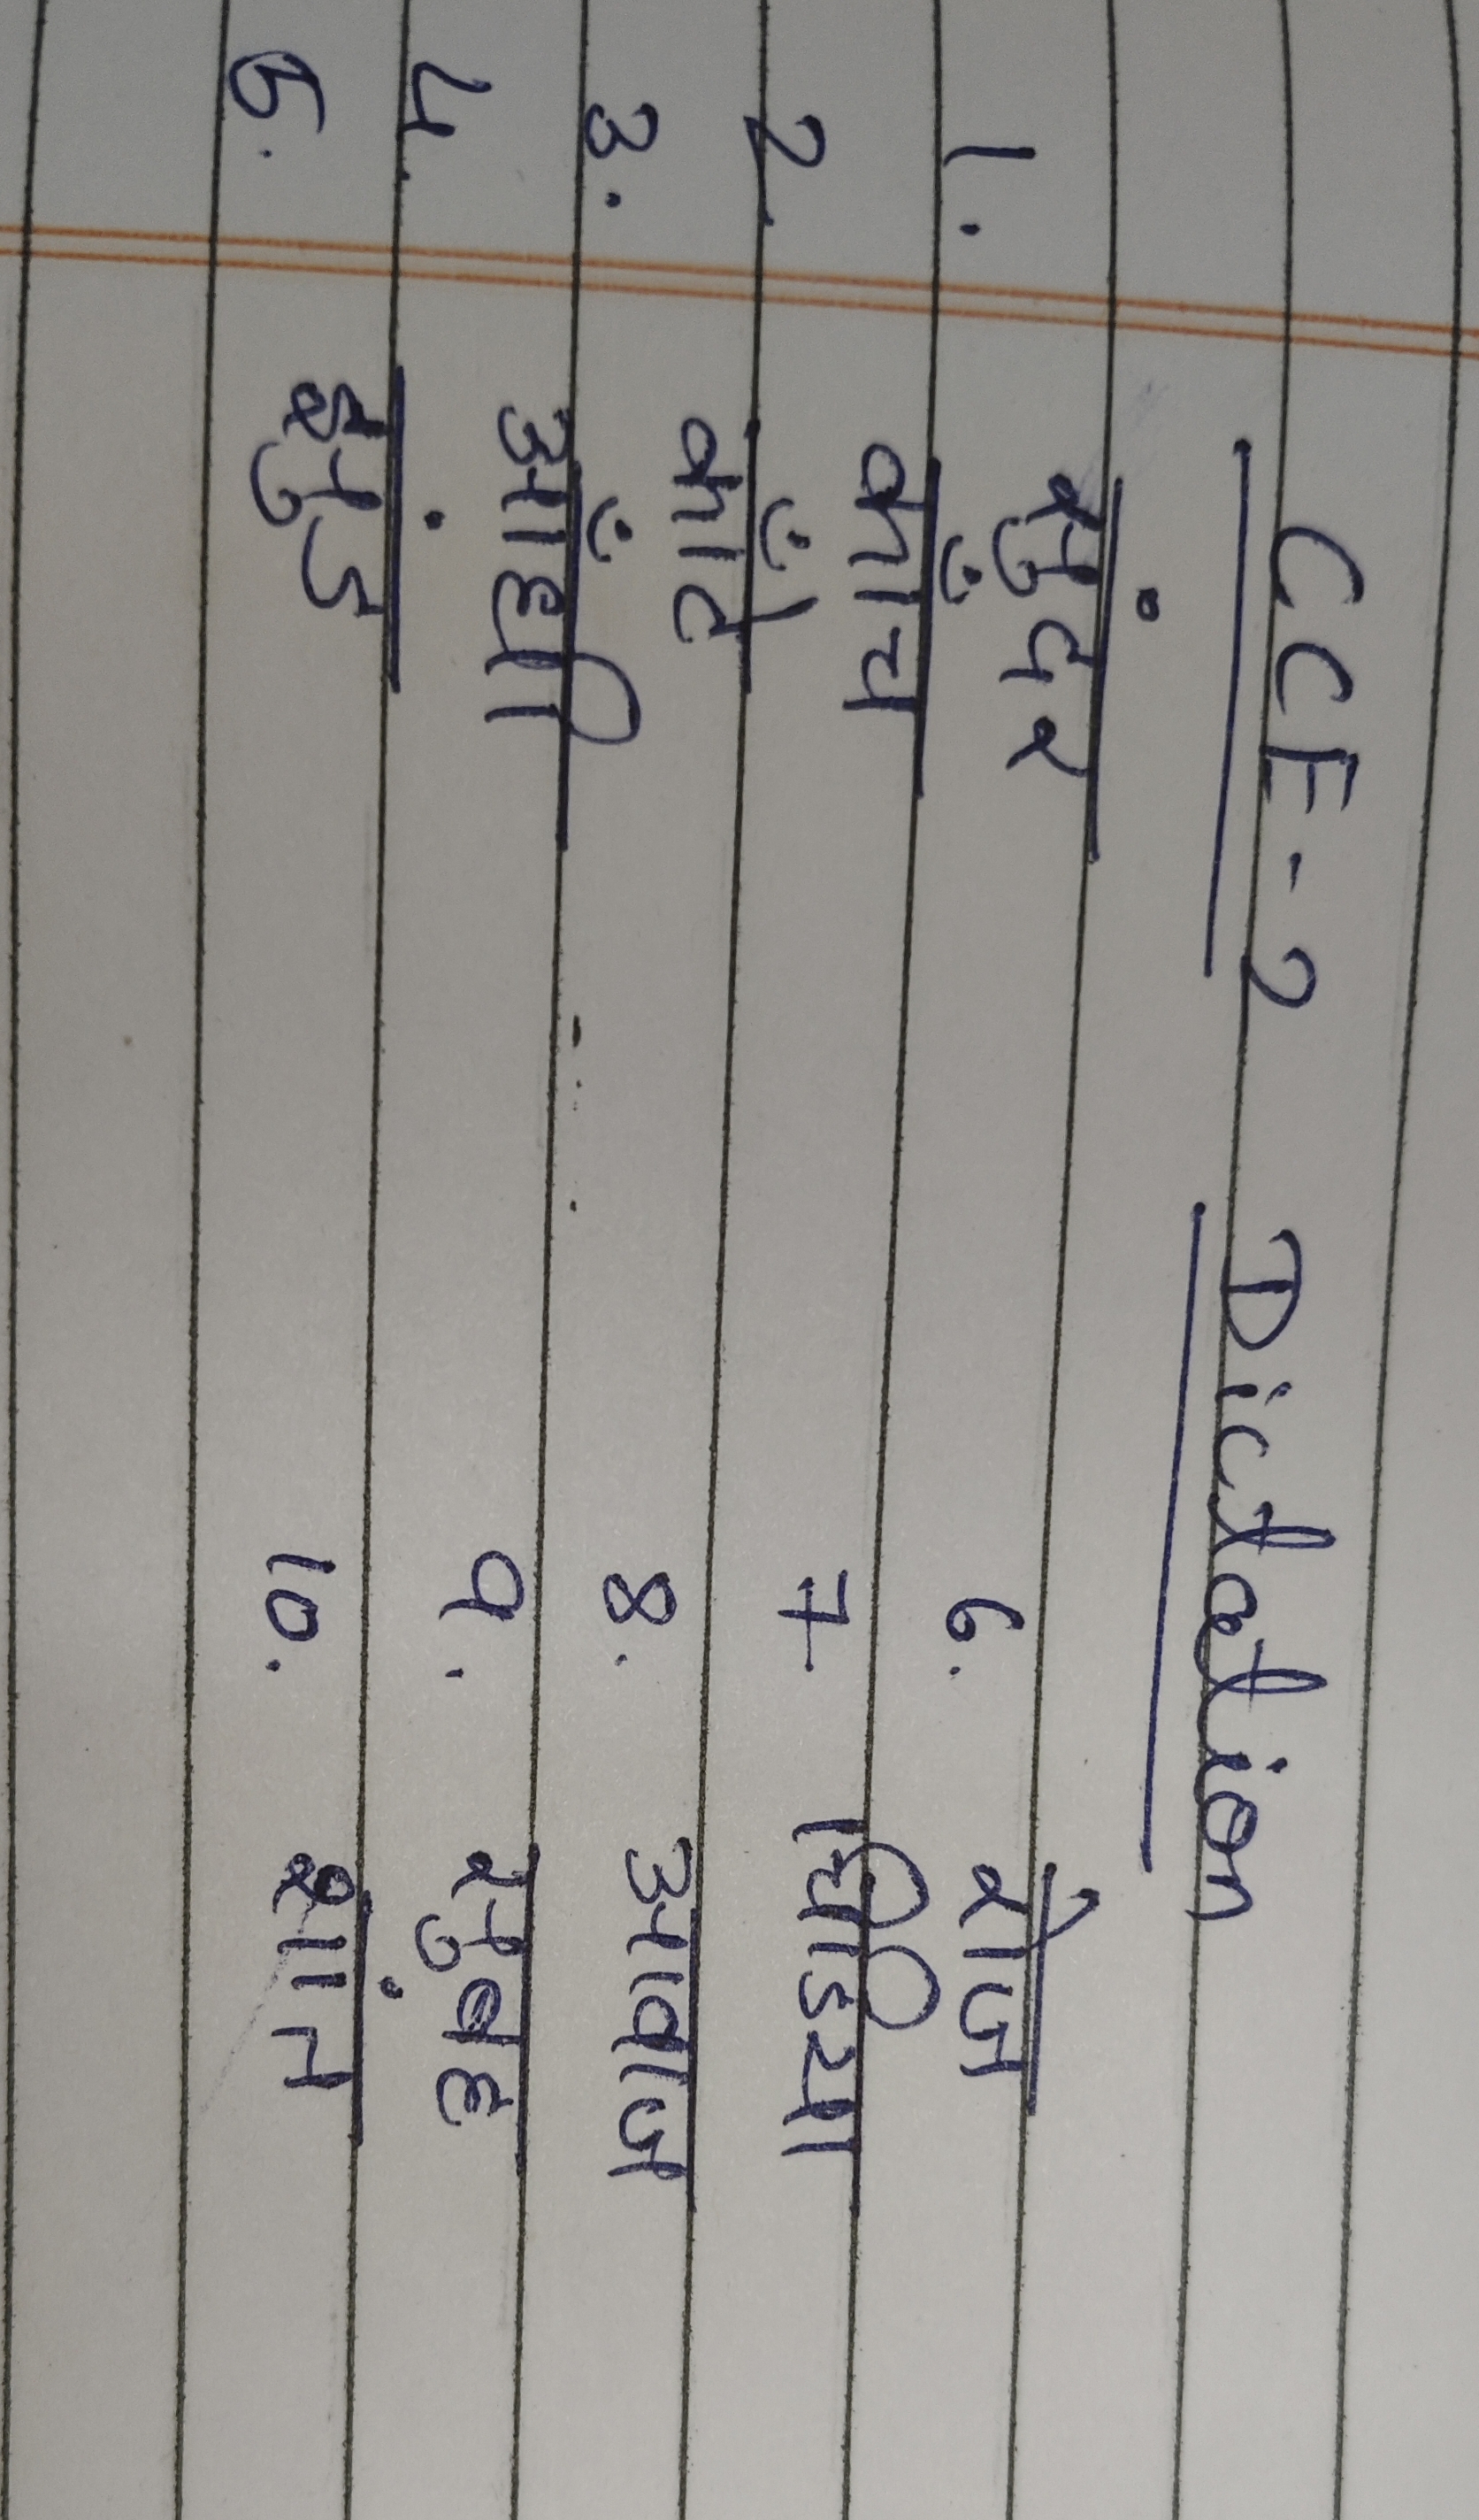 CCE-2 Dictation
1. सुंदर 6. रोज
2. काँच 7. चिडिया
3. काँटे 8. आवाज
4. आँधी 9. सुबह
5. झुंड 10. शांत